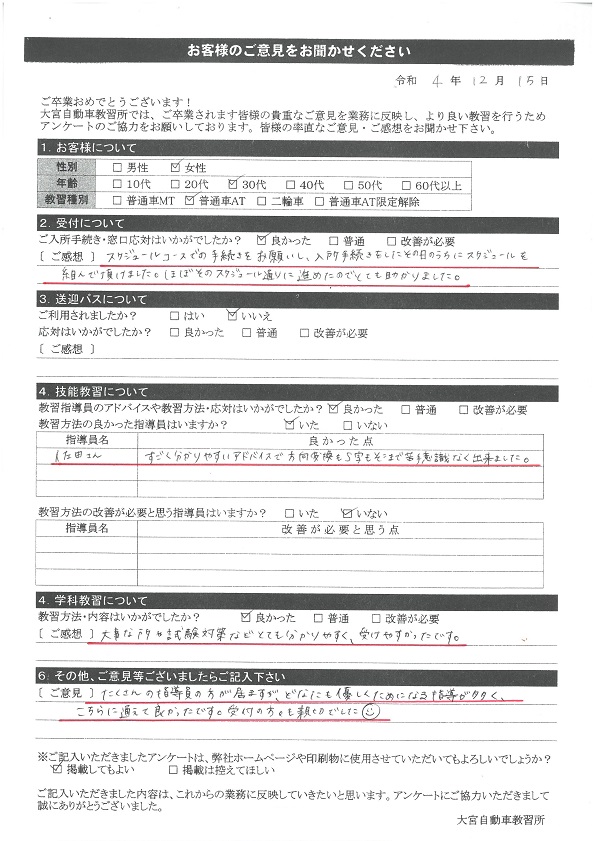 お客様のご意見をお聞かせください
令和 4 年 12 月 15 日
ご卒業おめでとうございます！
大宮自動車教習所では、ご卒業されます皆様の貴重なご意見を業務に反映し、より良い教習を行うため
アンケートのご協力をお願いしております。皆様の率直なご意見・ご感想をお聞かせ下さい。
1. お客様について
性別 □ 男性 ☑ 女性
年齢 □ 10代 □ 20代 ☑ 30代 □ 40代 □ 50代 □ 60代以上
教習種別 □ 普通車MT ☑ 普通車AT □ 二輪車 □ 普通車AT限定解除
2. 受付について
ご入所手続き・窓口応対はいかがでしたか？ ☑ 良かった □ 普通 □ 改善が必要
［ ご感想 ］ スケジュールコースでの手続きをお願いし、入所手続きをしたその日のうちにスケジュールを
組んで頂けました。ほぼそのスケジュール通りに進めたのでとても助かりました。
3. 送迎バスについて
ご利用されましたか？ □ はい ☑ いいえ
応対はいかがでしたか？ □ 良かった □ 普通 □ 改善が必要
［ ご感想 ］
4. 技能教習について
教習指導員のアドバイスや教習方法・応対はいかがでしたか？ ☑ 良かった □ 普通 □ 改善が必要
教習方法の良かった指導員はいますか？ ☑ いた □ いない
指導員名 良かった点
田さん すごく分かりやすいアドバイスで方向変換もS字もそこまで苦手意識なく出来ました。
教習方法の改善が必要と思う指導員はいますか？ □ いた ☑ いない
指導員名 改善が必要と思う点
4. 学科教習について
教習方法・内容はいかがでしたか？ ☑ 良かった □ 普通 □ 改善が必要
［ ご感想 ］ 大事な所や試験対策などとても分かりやすく、受けやすかったです。
6. その他、ご意見等ございましたらご記入下さい
［ ご意見 ］ たくさんの指導員の方が居ますが どなたも優しくためになる指導が多く、
こちらに通えて良かったです。受付の方も親切でした
※ご記入いただきましたアンケートは、弊社ホームページや印刷物に使用させていただいてもよろしいでしょうか？
☑ 掲載してもよい □ 掲載は控えてほしい
ご記入いただきました内容は、これからの業務に反映していきたいと思います。アンケートにご協力いただきまして
誠にありがとうございました。
大宮自動車教習所